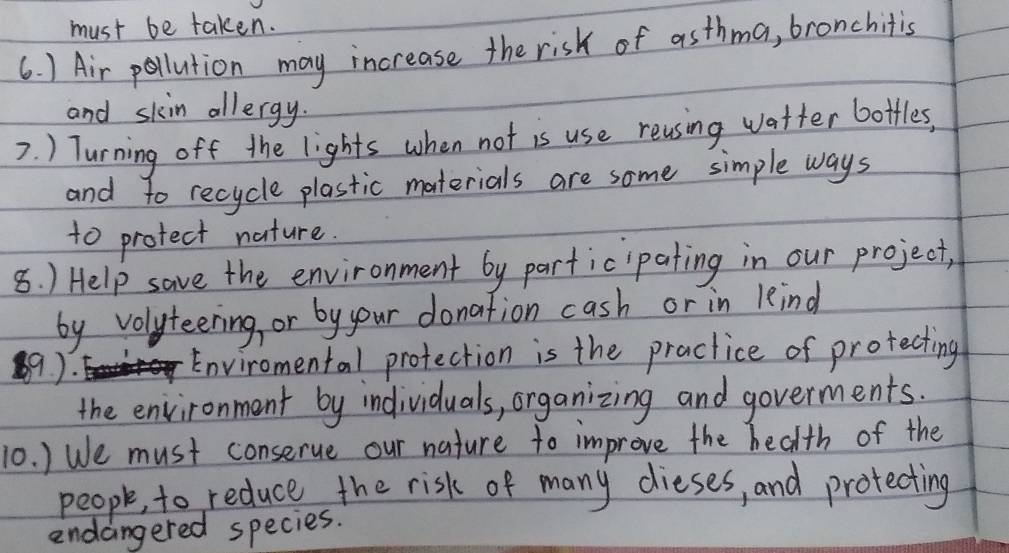 must be taken.
6.) Air pollution may increase the risk of asthma, bronchitis
and skin allergy.
7.) Turning off the lights when not is use reusing watter bottles,
and to recycle plastic materials are some simple ways
to protect nature.
8.) Help save the environment by participating in our project,
by volyteering, or by your donation cash or in kind
9.). Enviromental protection is the practice of protecting
the environment by individuals, organizing and goverments.
10.) We must conserve our nature to improve the health of the
people, to reduce the risk of many dieses, and protecting
endangered species.